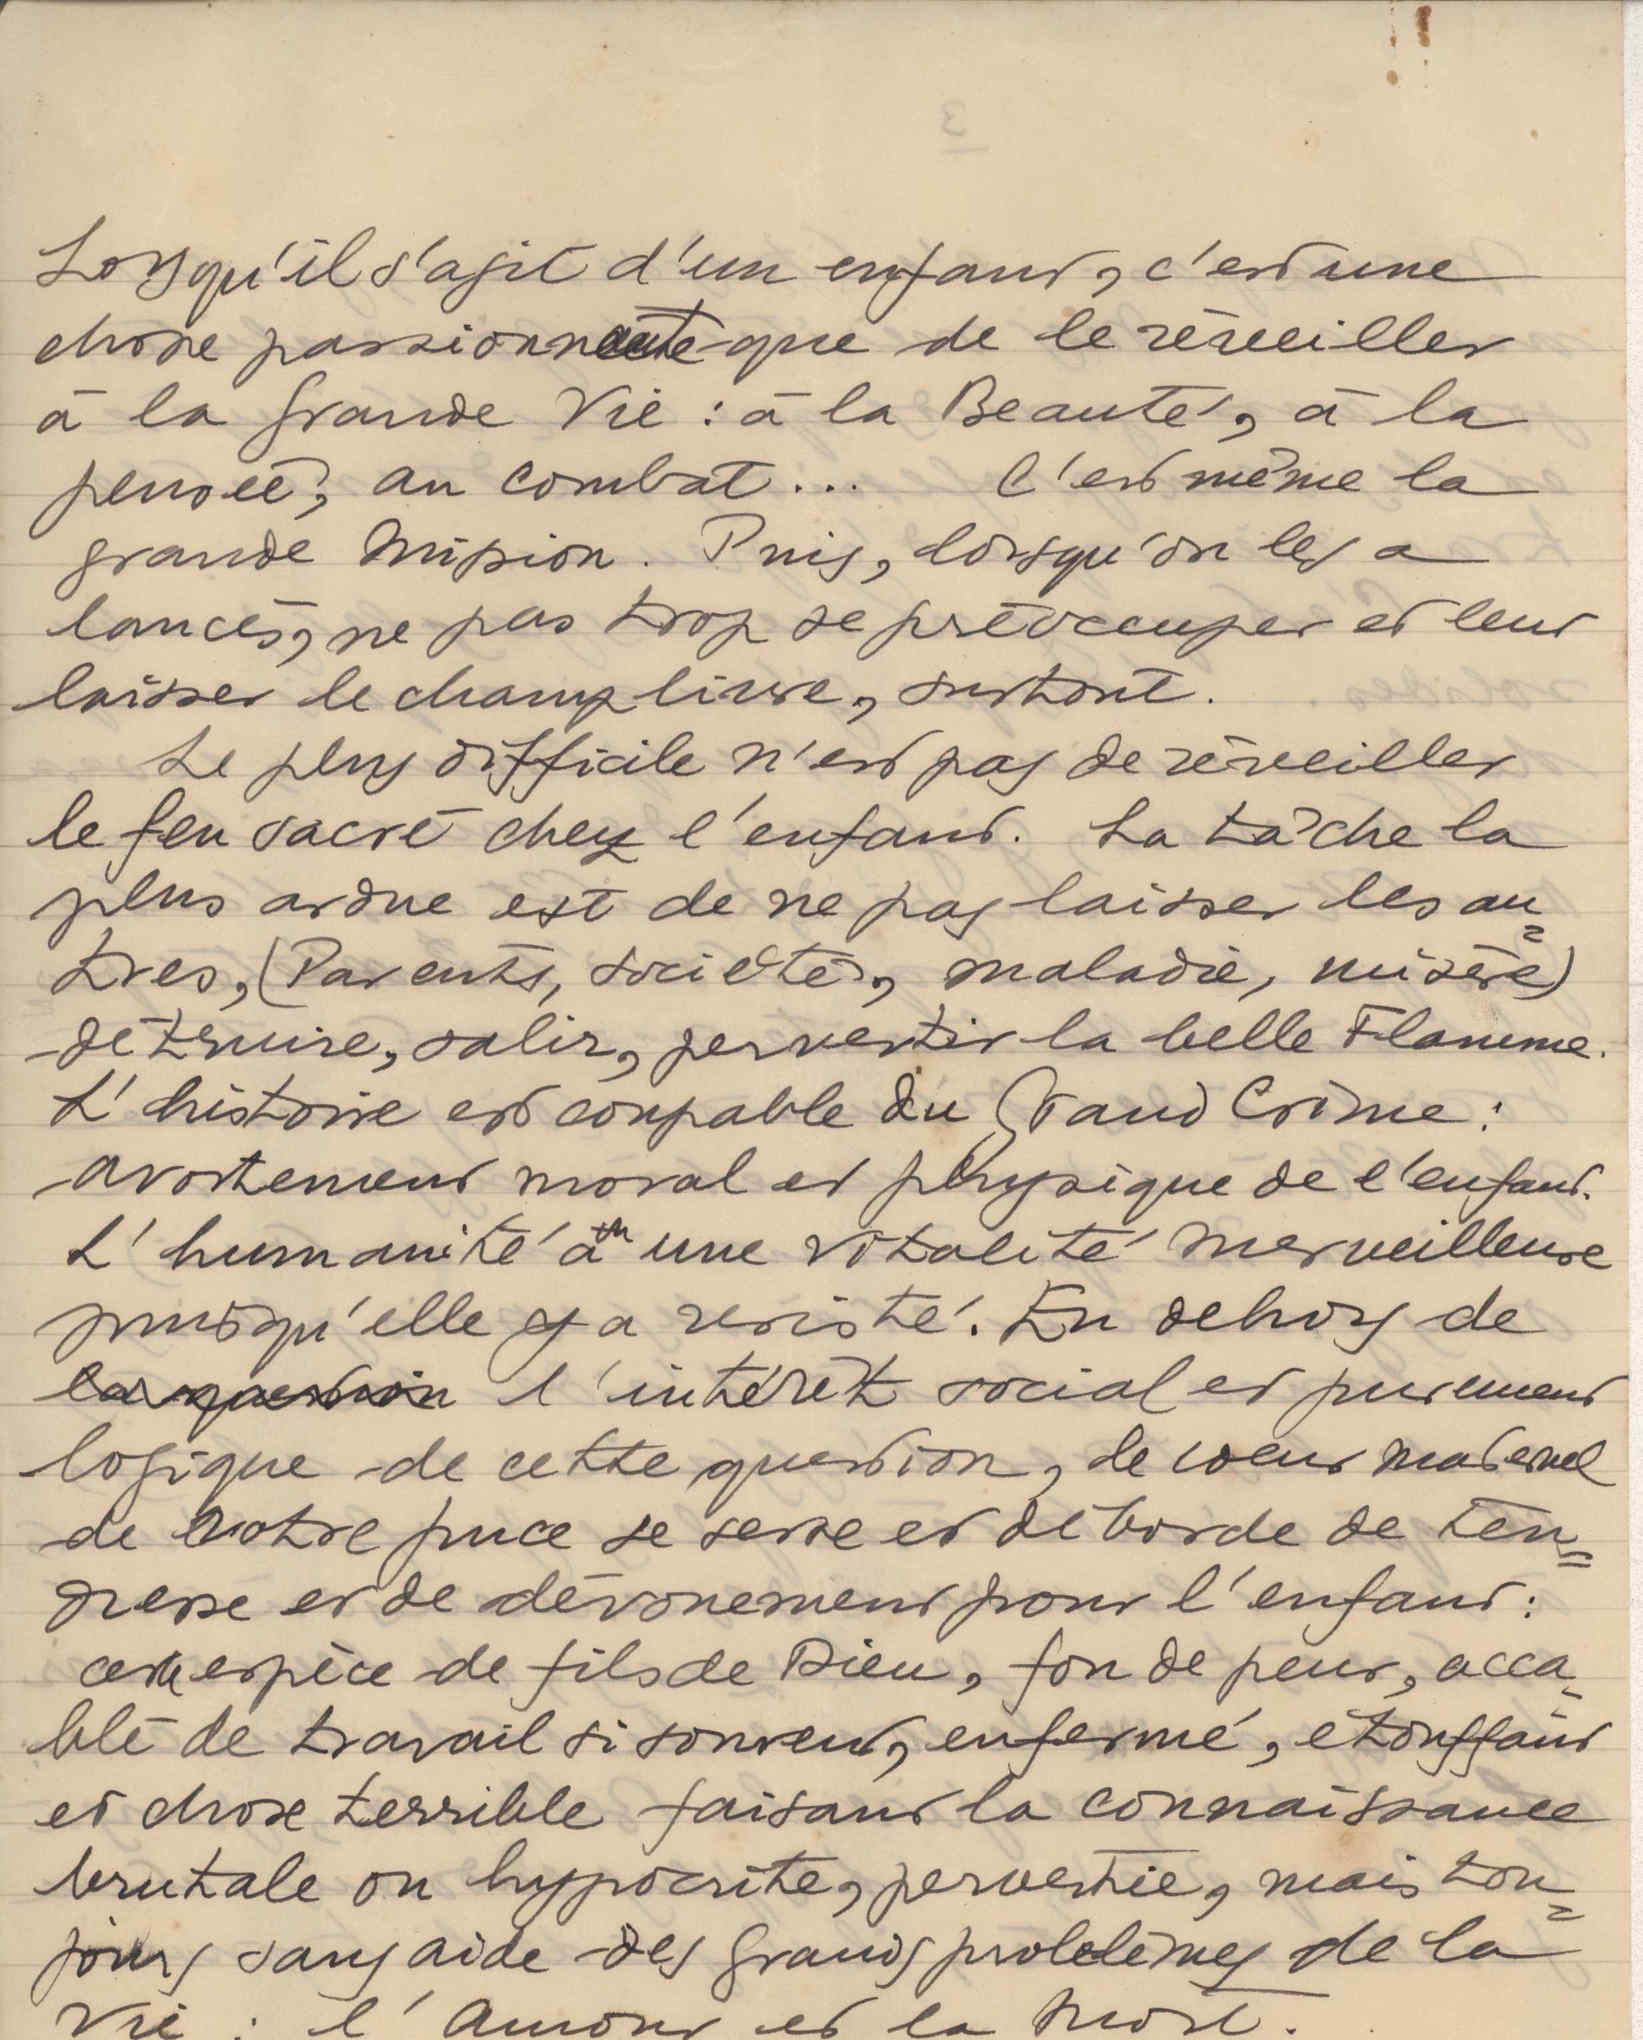 Lorsqu'il s'agit d'un enfant, c'est une
chose passionnante que de le réveiller
à la grande Vie : à la Beauté, à la
pensée, au combat... C'est même la
grande Mission. Puis, lorsqu'on les a
lancés, ne pas trop se préoccuper et leur
laisser le champ libre, surtout.
Le plus difficile n'est pas de réveiller
le feu sacré chez l'enfant. La tâche la
plus ardue est de ne pas laisser les au=
tres, (Parents, société, maladie, misère)
détruire, salir, pervertir la belle Flamme.
L'histoire est coupable du Grand Crime :
avortement moral et physique de l'enfant.
L'humanité a une vitalité merveilleuse
puisqu'elle y a résisté. En dehors de
la question l'intérêt social et purement
logique de cette question, le coeur maternel
de votre puce se serre et déborde de ten=
dresse et de dévouement pour l'enfant :
cette espèce de fils de Dieu, fou de peur, acca=
blé de travail si souvent, enfermé, étouffant
et chose terrible faisant la connaissance
brutale ou hypocrite, pervertie, mais tou=
jours sans aide des grands problèmes de la
Vie : l'Amour et la Mort.